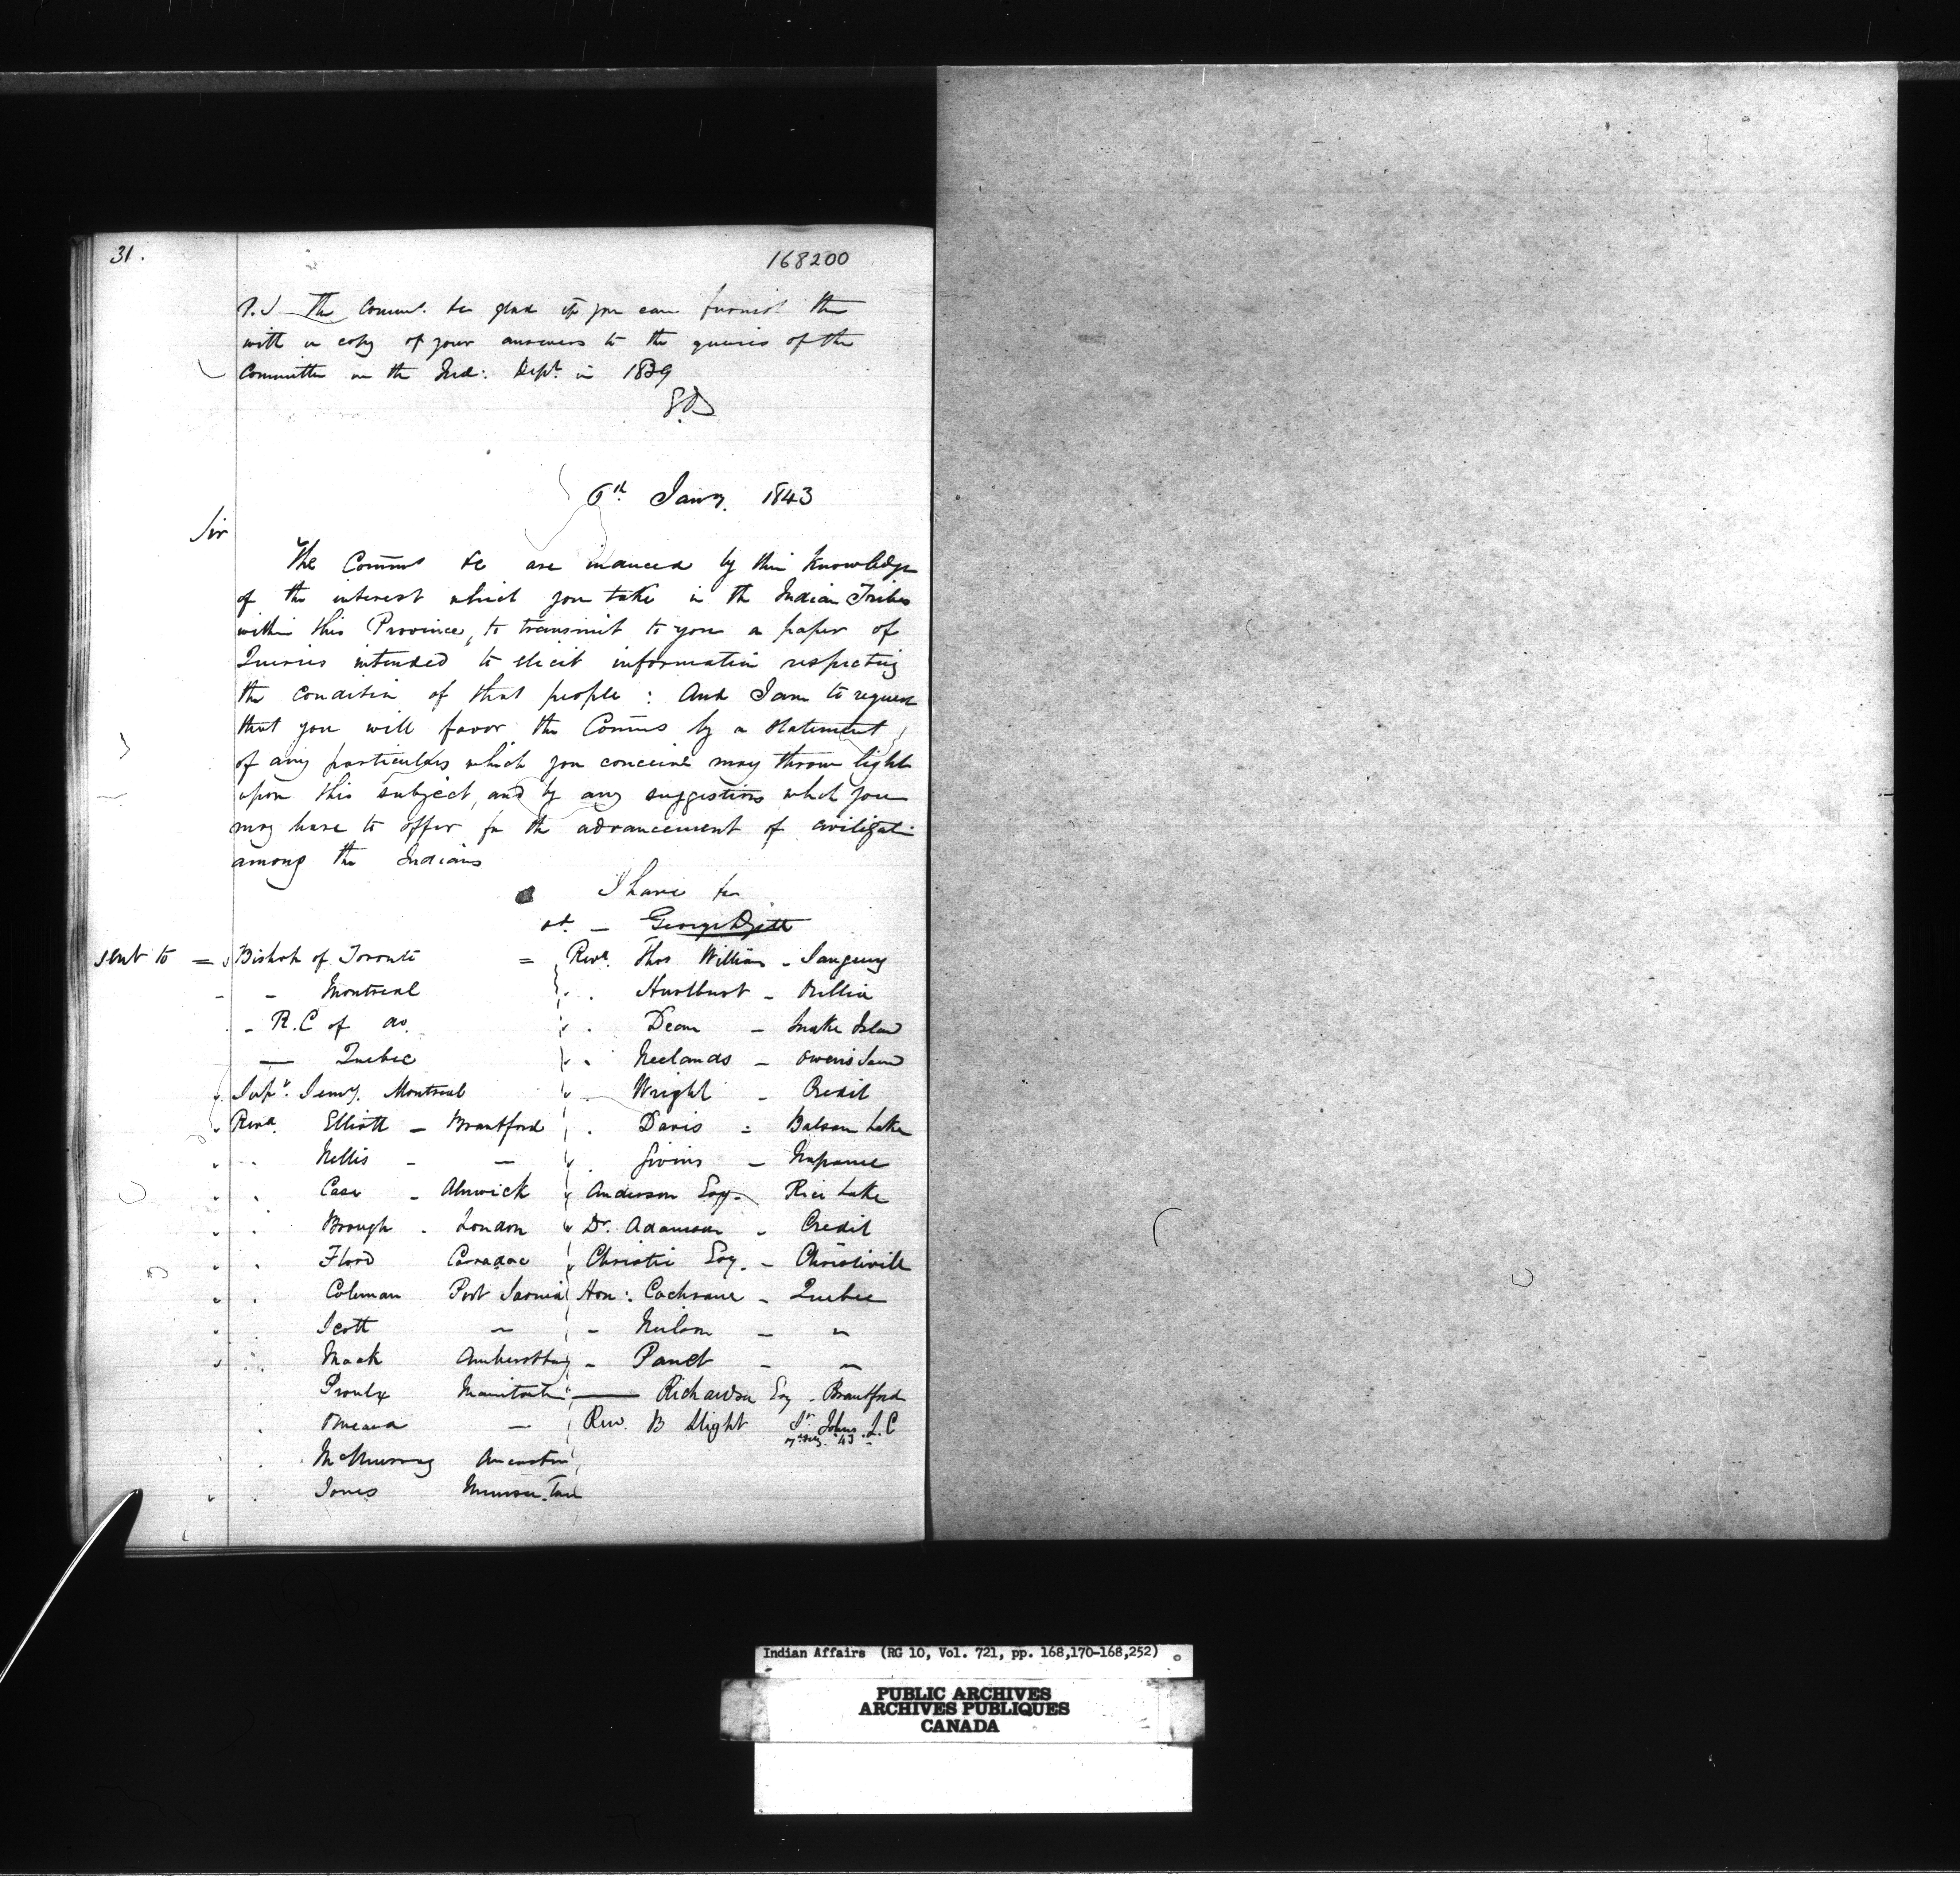 31.
168200
P.S The Commrs. &c glad if you can furnish them
with a copy of your answers to the queries of the
Committee on the Ind: Dept. in 1839
6th Jany. 1843
Sir
The Comms &c are induced by their knowledge
of the interest which you take in the Indian Tribes
within this Province, to transmit to you a paper of
Queries intended to elicit information respecting
the condition of that people: And I am to request
that you will favor the Comms by a statement
of any particulars which you conceive may throw light
upon this subject, and by any suggestions which you
may have to offer for the advancement of civilizati
among the Indians
I have &c
George
sent to = Bishop of Toronto = Revd. Thos William - Saugeeng
- - Montreal Hurlburt - Orillia
- R.C of do. Dean - Snake Island
— Quebec Neelands - Owens Sound
Supr. Semy. Montreal Wright - Credit
Revd. Elliott - Brantford Davis = Balsam Lake
Nellis - - Givins - Napanee
Case - Alnwick Anderson Esq. Rice Lake
Brough - London Dr. Adamson - Credit
Flood Caradoc Christie Esq. - Christieville
Coleman Port Sarnia Hon: Cochrane - Quebec
Scott " - Neilson - "
Mack Amherstburg - Panet - "
Proulx Manitoulin — Richardson Esq - Brantford
Omeara - Rev. B Slight St. Johns L.C
McMurray Ancaster
Jones Munsee Town
Indian Affairs (RG 10, Vol. 721, pp. 168,170-168,252)
PUBLIC ARCHIVES
ARCHIVES PUBLIQUES
CANADA